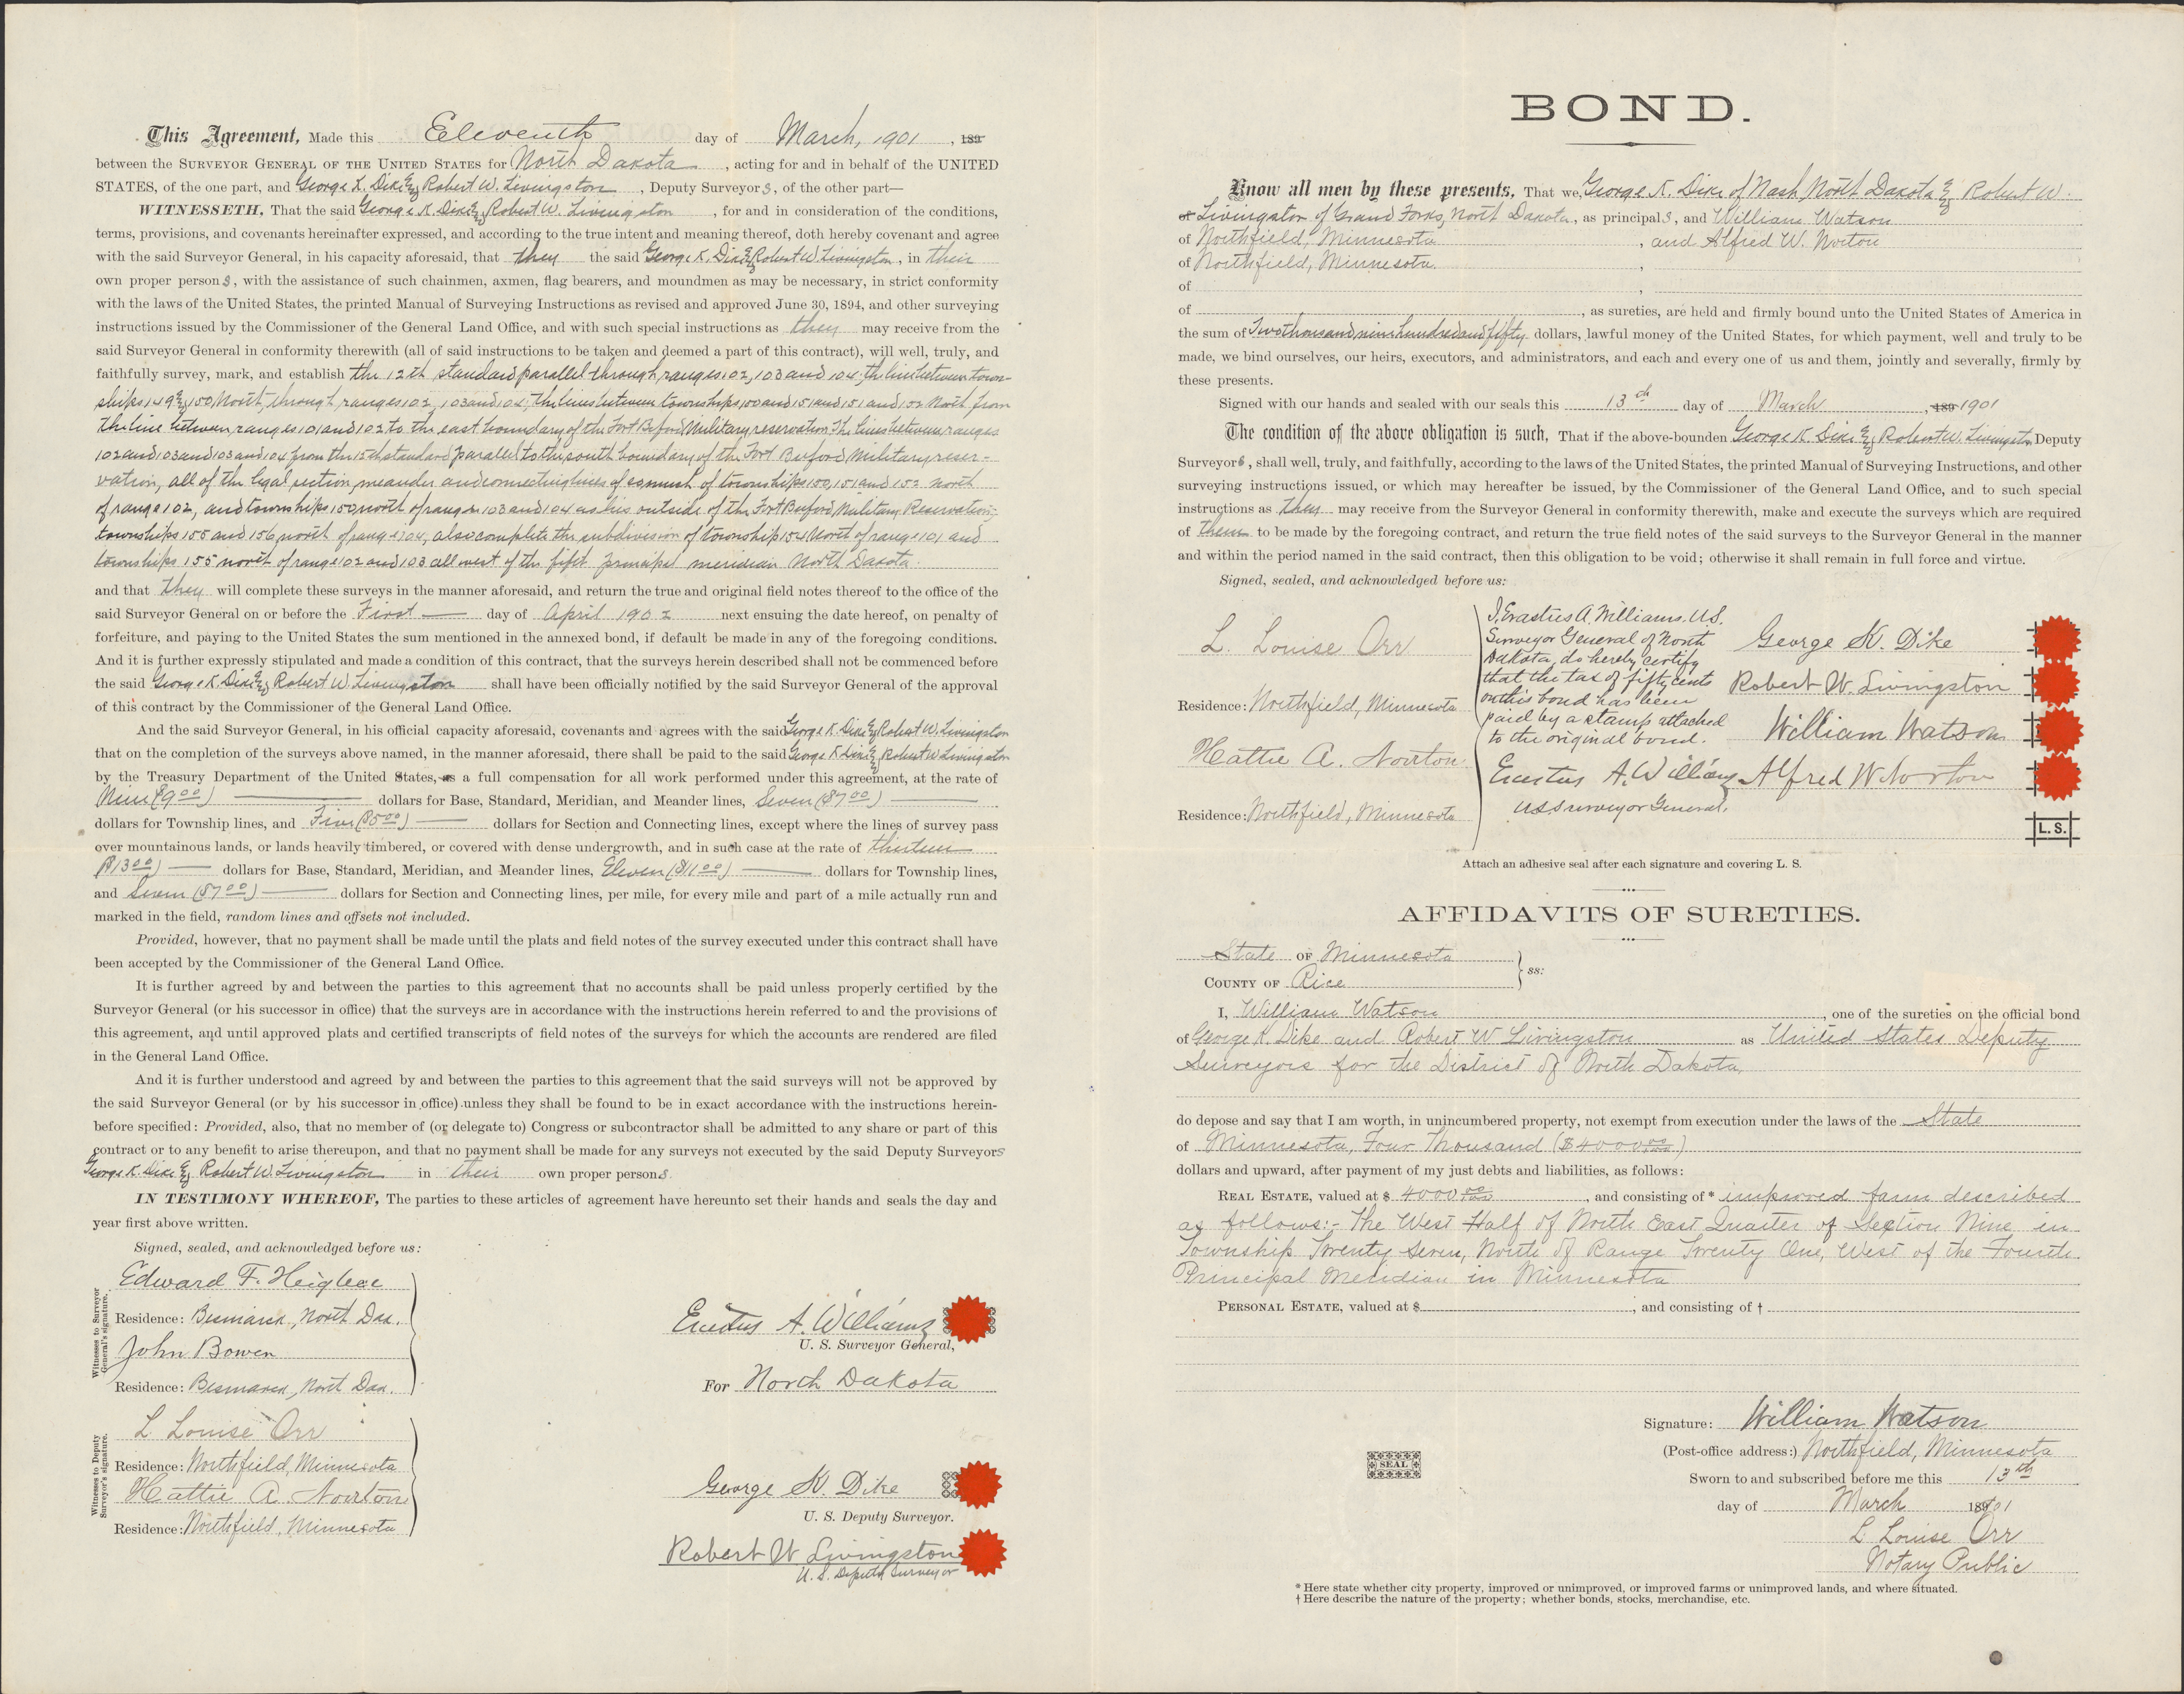 This Agreement, Made this Eleventh day of March, 1901, 189
between the SURVEYOR GENERAL OF THE UNITED STATES for North Dakota, acting for and in behalf of the UNITED
STATES, of the one part, and George K. Dike & Robert W. Livingston, Deputy Surveyors, of the other part—
WITNESSETH, That the said George K. Dike & Robert W. Livingston, for and in consideration of the conditions,
terms, provisions, and covenants hereinafter expressed, and according to the true intent and meaning thereof, doth hereby covenant and agree
with the said Surveyor General, in his capacity aforesaid, that they the said George K. Dike & Robert W. Livingston, in their
own proper persons, with the assistance of such chainmen, axmen, flag bearers, and moundmen as may be necessary, in strict conformity
with the laws of the United States, the printed Manual of Surveying Instructions as revised and approved June 30, 1894, and other surveying
instructions issued by the Commissioner of the General Land Office, and with such special instructions as they may receive from the
said Surveyor General in conformity therewith (all of said instructions to be taken and deemed a part of this contract), will well, truly, and
faithfully survey, mark, and establish the 12th standard parallel through ranges 102, 103 and 104; the line between town-
ships 149 & 150 North, through ranges 102, 103 and 104; the lines between townships 150 and 151 and 151 and 152 North from
the line between ranges 101 and 102 to the east boundary of the Fort Buford Military reservation. The lines between ranges
102 and 103 and 103 and 104 from the 12th standard parallel to the south boundary of the Fort Buford Military reser-
vation, all of the legal section, meander and connecting lines of so much of townships 150, 151 and 152 north
of range 102, and townships 150 north of ranges 103 and 104 as lies outside of the Fort Buford Military Reservation;
townships 155 and 156 north of range 104, also complete the subdivision of township 154 North of range 101 and
townships 155 north of range 102 and 103 all west of the fifth principal meridian North Dakota.
and that they will complete these surveys in the manner aforesaid, and return the true and original field notes thereof to the office of the
said Surveyor General on or before the First day of April 1902 next ensuing the date hereof, on penalty of
forfeiture, and paying to the United States the sum mentioned in the annexed bond, if default be made in any of the foregoing conditions.
And it is further expressly stipulated and made a condition of this contract, that the surveys herein described shall not be commenced before
the said George K. Dike & Robert W. Livingston shall have been officially notified by the said Surveyor General of the approval
of this contract by the Commissioner of the General Land Office.
And the said Surveyor General, in his official capacity aforesaid, covenants and agrees with the said George K. Dike & Robert W. Livingston
that on the completion of the surveys above named, in the manner aforesaid, there shall be paid to the said George K. Dike & Robert W. Livingston
by the Treasury Department of the United States, as a full compensation for all work performed under this agreement, at the rate of
Nine ($9.00) dollars for Base, Standard, Meridian, and Meander lines, Seven ($7.00)
dollars for Township lines, and Five ($5.00) dollars for Section and Connecting lines, except where the lines of survey pass
over mountainous lands, or lands heavily timbered, or covered with dense undergrowth, and in such case at the rate of thirteen
($13.00) dollars for Base, Standard, Meridian, and Meander lines, Eleven ($11.00) dollars for Township lines,
and Seven ($7.00) dollars for Section and Connecting lines, per mile, for every mile and part of a mile actually run and
marked in the field, random lines and offsets not included.
Provided, however, that no payment shall be made until the plats and field notes of the survey executed under this contract shall have
been accepted by the Commissioner of the General Land Office.
It is further agreed by and between the parties to this agreement that no accounts shall be paid unless properly certified by the
Surveyor General (or his successor in office) that the surveys are in accordance with the instructions herein referred to and the provisions of
this agreement, and until approved plats and certified transcripts of field notes of the surveys for which the accounts are rendered are filed
in the General Land Office.
And it is further understood and agreed by and between the parties to this agreement that the said surveys will not be approved by
the said Surveyor General (or by his successor in office) unless they shall be found to be in exact accordance with the instructions herein-
before specified: Provided, also, that no member of (or delegate to) Congress or subcontractor shall be admitted to any share or part of this
contract or to any benefit to arise thereupon, and that no payment shall be made for any surveys not executed by the said Deputy Surveyors
George K. Dike & Robert W. Livingston in their own proper persons.
IN TESTIMONY WHEREOF, The parties to these articles of agreement have hereunto set their hands and seals the day and
year first above written.
Signed, sealed, and acknowledged before us:
Witnesses to Surveyor General's signature.
Edward F.
Residence: Bismarck, North Dak.
John Bowen
Residence: Bismarck, North Dak.
Erastus A. Williams
U. S. Surveyor General,
For North Dakota
Witnesses to Deputy Surveyor's signature.
L Louise Orr
Residence: Northfield, Minnesota
Hattie A. Norton
Residence: Northfield, Minnesota
George K. Dike
U. S. Deputy Surveyor.
Robert W Livingston
U. S. Deputy Surveyor
BOND.
Know all men by these presents, That we, George K. Dike of Nash, North Dakota & Robert W.
of Livingston of Grand Forks, North Dakota, as principals, and William Watson
of Northfield, Minnesota, and Alfred W. Norton
of Northfield, Minnesota.,
of ,
of , as sureties, are held and firmly bound unto the United States of America in
the sum of Two thousand nine hundred and fifty dollars, lawful money of the United States, for which payment, well and truly to be
made, we bind ourselves, our heirs, executors, and administrators, and each and every one of us and them, jointly and severally, firmly by
these presents.
Signed with our hands and sealed with our seals this 13th day of March, 189 1901
The condition of the above obligation is such, That if the above-bounden George K. Dike & Robert W. Livingston Deputy
Surveyors, shall well, truly, and faithfully, according to the laws of the United States, the printed Manual of Surveying Instructions, and other
surveying instructions issued, or which may hereafter be issued, by the Commissioner of the General Land Office, and to such special
instructions as they may receive from the Surveyor General in conformity therewith, make and execute the surveys which are required
of them to be made by the foregoing contract, and return the true field notes of the said surveys to the Surveyor General in the manner
and within the period named in the said contract, then this obligation to be void; otherwise it shall remain in full force and virtue.
Signed, sealed, and acknowledged before us:
L. Louise Orr
Residence: Northfield, Minnesota
Hattie A. Norton
Residence: Northfield, Minnesota
I, Erastus A. Williams, U.S.
Surveyor General of North
Dakota, do hereby certify
that the tax of fifty cents
on this bond has been
paid by a stamp attached
to the original bond.
Erastus A. Williams
U.S. Surveyor General.
George K. Dike
Robert W. Livingston
William Watson
Alfred W Norton
L. S.
Attach an adhesive seal after each signature and covering L. S.
AFFIDAVITS OF SURETIES.
State OF Minnesota
COUNTY OF Rice
ss:
I, William Watson, one of the sureties on the official bond
of George K. Dike and Robert W Livingston as United States Deputy
Surveyors for the District of North Dakota,
do depose and say that I am worth, in unincumbered property, not exempt from execution under the laws of the State
of Minnesota, Four Thousand ($4000.00)
dollars and upward, after payment of my just debts and liabilities, as follows:
REAL ESTATE, valued at $ 4000.00, and consisting of * improved farm described
as follows:- The West Half of North East Quarter of Section Nine in
Township Twenty Seven, North of Range Twenty One, West of the Fourth
Principal Meridian in Minnesota
PERSONAL ESTATE, valued at $, and consisting of †
Signature: William Watson
(Post-office address:) Northfield, Minnesota
SEAL
Sworn to and subscribed before me this 13th
day of March 1901
L Louise Orr
Notary Public
* Here state whether city property, improved or unimproved, or improved farms or unimproved lands, and where situated.
† Here describe the nature of the property; whether bonds, stocks, merchandise, etc.